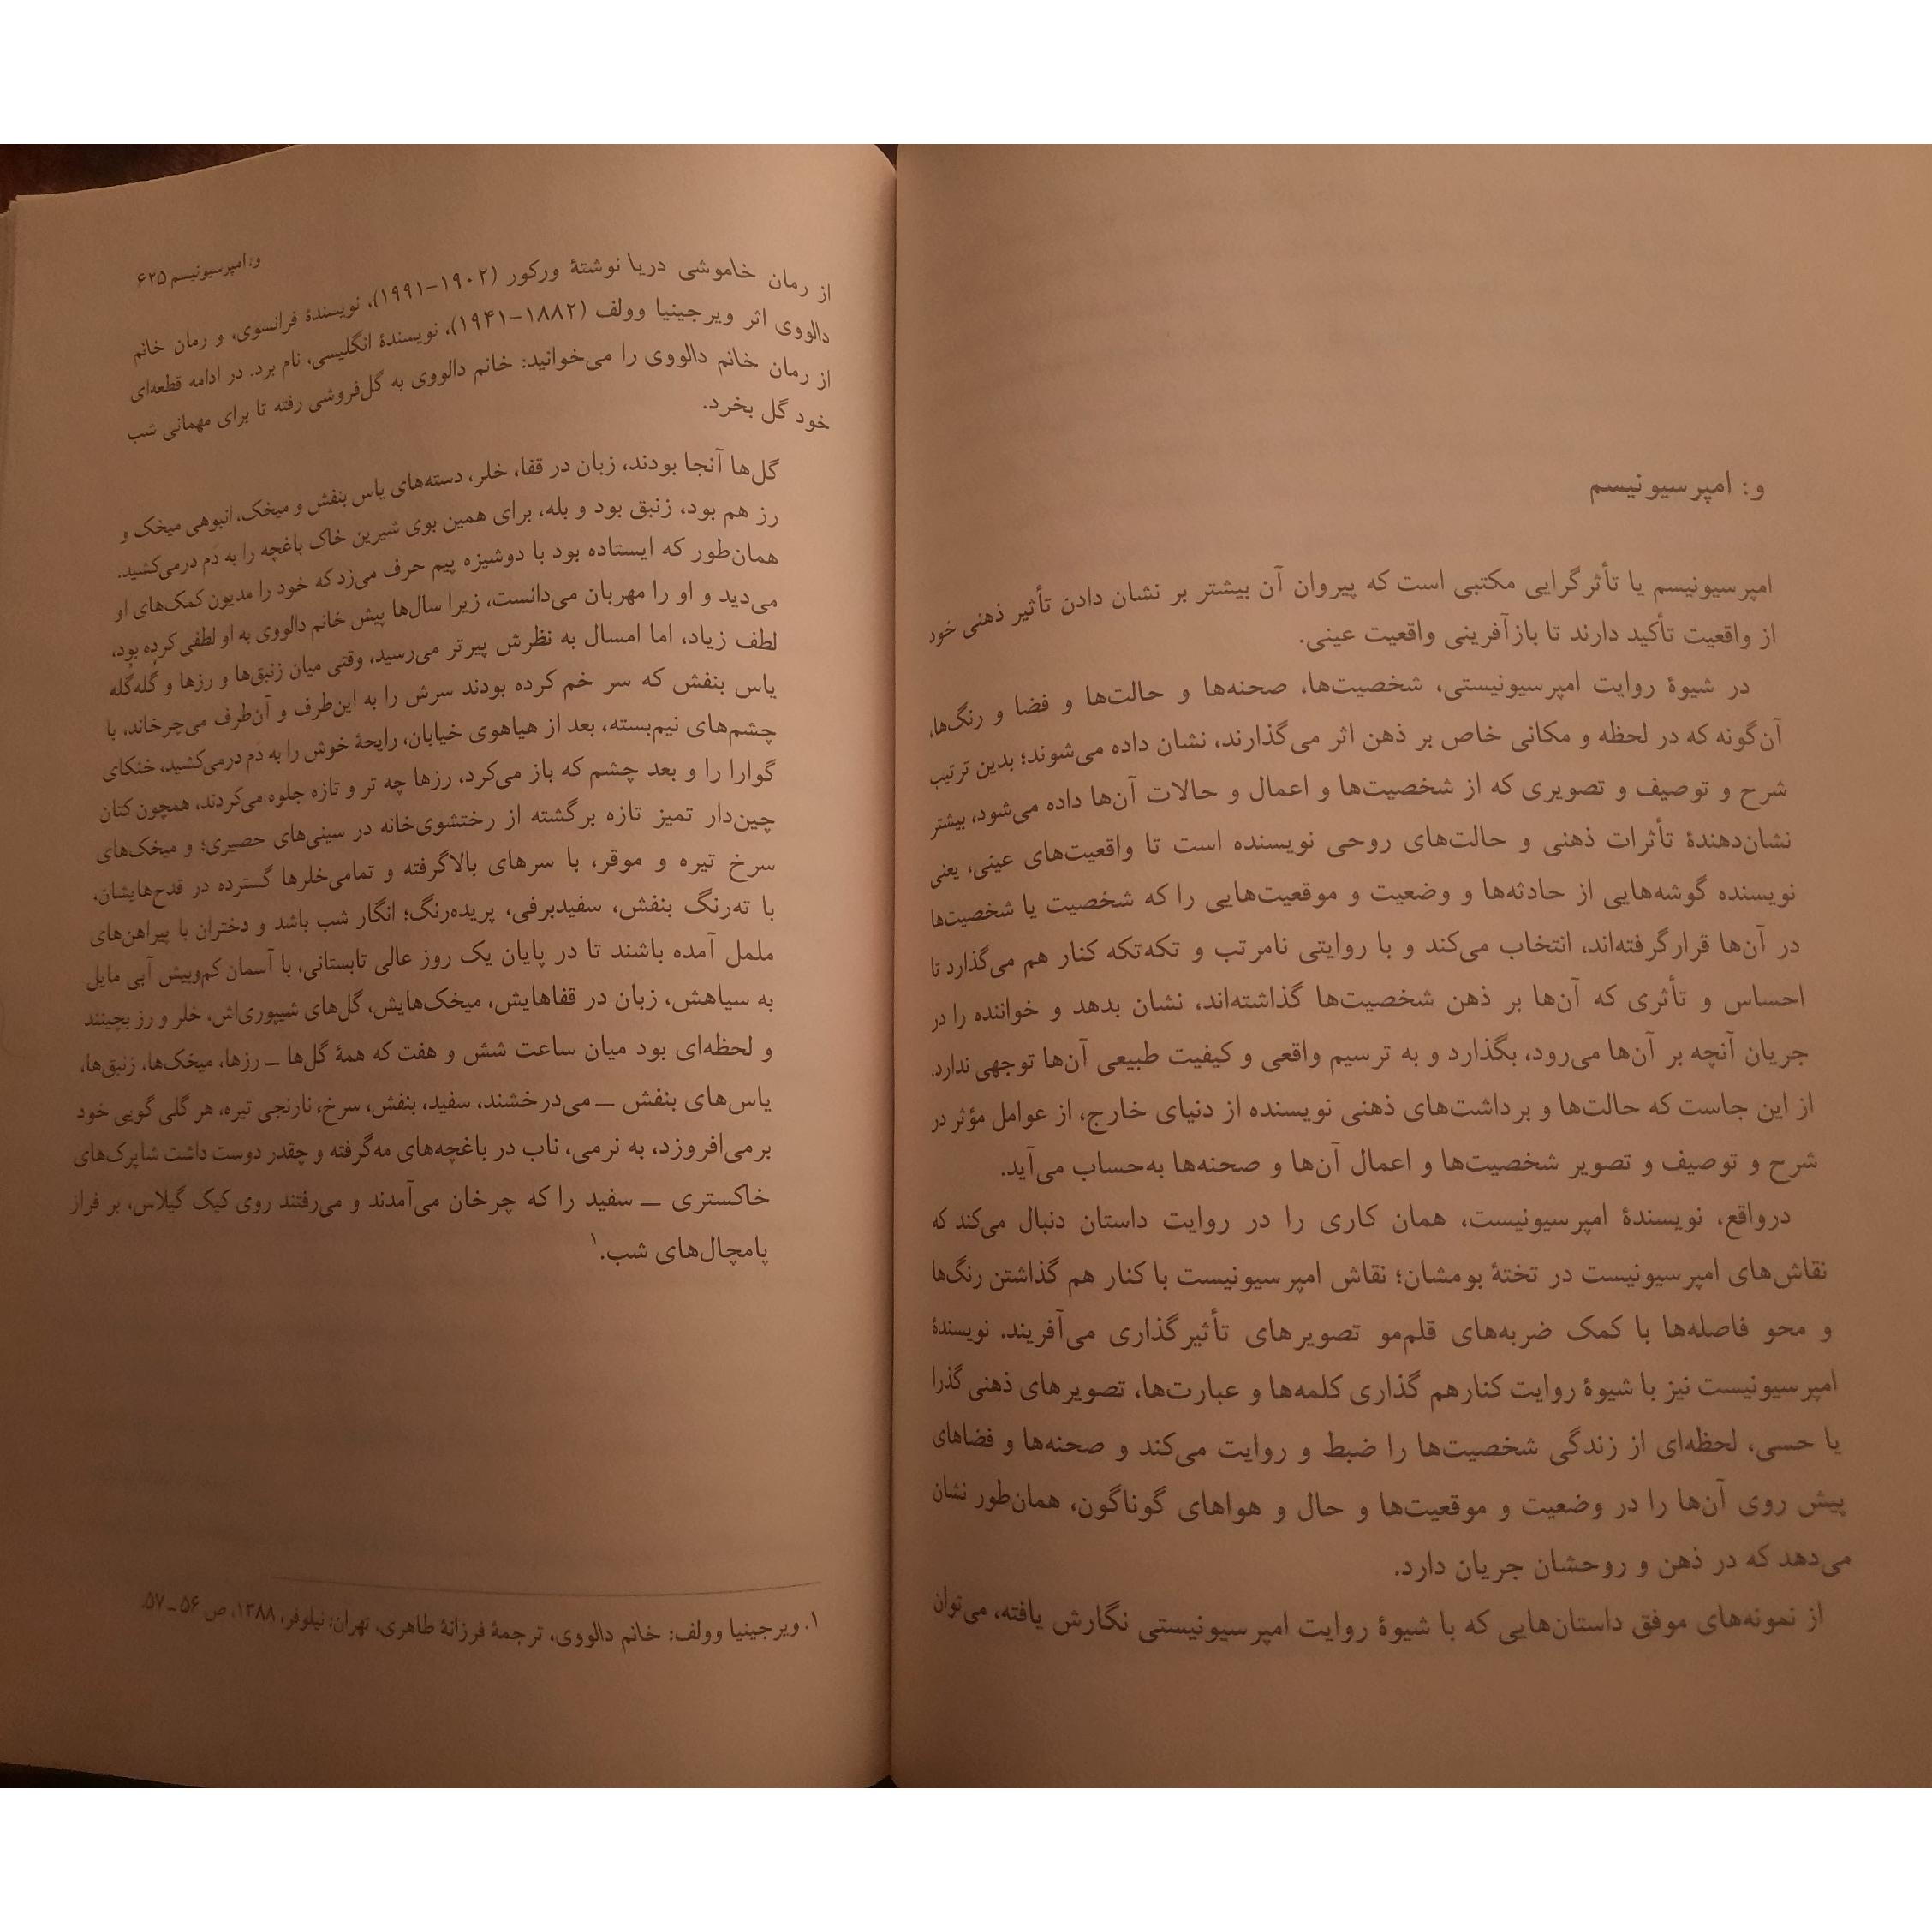 و: امپرسیونیسم
امپرسیونیسم یا تأثرگرایی مکتبی است که پیروان آن بیشتر بر نشان دادن تأثیر ذهنی خود
از واقعیت تأکید دارند تا بازآفرینی واقعیت عینی.
در شیوهٔ روایت امپرسیونیستی، شخصیت‌ها، صحنه‌ها و حالت‌ها و فضا و رنگ‌ها،
آن‌گونه که در لحظه و مکانی خاص بر ذهن اثر می‌گذارند، نشان داده می‌شوند؛ بدین ترتیب
شرح و توصیف و تصویری که از شخصیت‌ها و اعمال و حالات آن‌ها داده می‌شود، بیشتر
نشان‌دهندهٔ تأثرات ذهنی و حالت‌های روحی نویسنده است تا واقعیت‌های عینی، یعنی
نویسنده گوشه‌هایی از حادثه‌ها و وضعیت و موقعیت‌هایی را که شخصیت یا شخصیت‌ها
در آن‌ها قرارگرفته‌اند، انتخاب می‌کند و با روایتی نامرتب و تکه‌تکه کنار هم می‌گذارد تا
احساس و تأثری که آن‌ها بر ذهن شخصیت‌ها گذاشته‌اند، نشان بدهد و خواننده را در
جریان آنچه بر آن‌ها می‌رود، بگذارد و به ترسیم واقعی و کیفیت طبیعی آن‌ها توجهی ندارد.
از این جاست که حالت‌ها و برداشت‌های ذهنی نویسنده از دنیای خارج، از عوامل مؤثر در
شرح و توصیف و تصویر شخصیت‌ها و اعمال آن‌ها و صحنه‌ها به‌حساب می‌آید.
درواقع، نویسندهٔ امپرسیونیست، همان کاری را در روایت داستان دنبال می‌کند که
نقاش‌های امپرسیونیست در تختهٔ بومشان؛ نقاش امپرسیونیست با کنار هم گذاشتن رنگ‌ها
و محو فاصله‌ها با کمک ضربه‌های قلم‌مو تصویرهای تأثیرگذاری می‌آفریند. نویسندهٔ
امپرسیونیست نیز با شیوهٔ روایت کنارهم گذاری کلمه‌ها و عبارت‌ها، تصویرهای ذهنی گذرا
یا حسی، لحظه‌ای از زندگی شخصیت‌ها را ضبط و روایت می‌کند و صحنه‌ها و فضاهای
پیش روی آن‌ها را در وضعیت و موقعیت‌ها و حال و هواهای گوناگون، همان‌طور نشان
می‌دهد که در ذهن و روحشان جریان دارد.
از نمونه‌های موفق داستان‌هایی که با شیوهٔ روایت امپرسیونیستی نگارش یافته، می‌توان
و: امپرسیونیسم ۶۲۵
از رمان خاموشی دریا نوشتهٔ ورکور (۱۹۰۲–۱۹۹۱)، نویسندهٔ فرانسوی، و رمان خانم
دالووی اثر ویرجینیا وولف (۱۸۸۲–۱۹۴۱)، نویسندهٔ انگلیسی، نام برد. در ادامه قطعه‌ای
از رمان خانم دالووی را می‌خوانید: خانم دالووی به گل‌فروشی رفته تا برای مهمانی شب
خود گل بخرد.
گل‌ها آنجا بودند، زبان در قفا، خلر، دسته‌های یاس بنفش و میخک، انبوهی میخک و
رز هم بود، زنبق بود و بله، برای همین بوی شیرین خاک باغچه را به دَم درمی‌کشید.
همان‌طور که ایستاده بود با دوشیزه پیم حرف می‌زد که خود را مدیون کمک‌های او
می‌دید و او را مهربان می‌دانست، زیرا سال‌ها پیش خانم دالووی به او لطفی کرده بود،
لطف زیاد، اما امسال به نظرش پیرتر می‌رسید، وقتی میان زنبق‌ها و رزها و گُله‌گُله
یاس بنفش که سر خم کرده بودند سرش را به این‌طرف و آن‌طرف می‌چرخاند، با
چشم‌های نیم‌بسته، بعد از هیاهوی خیابان، رایحهٔ خوش را به دَم درمی‌کشید، خنکای
گوارا را و بعد چشم که باز می‌کرد، رزها چه تر و تازه جلوه می‌کردند، همچون کتان
چین‌دار تمیز تازه برگشته از رختشوی‌خانه در سینی‌های حصیری؛ و میخک‌های
سرخ تیره و موقر، با سرهای بالاگرفته و تمامی‌خلرها گسترده در قدح‌هایشان،
با ته‌رنگ بنفش، سفیدبرفی، پریده‌رنگ؛ انگار شب باشد و دختران با پیراهن‌های
ململ آمده باشند تا در پایان یک روز عالی تابستانی، با آسمان کم‌وبیش آبی مایل
به سیاهش، زبان در قفاهایش، میخک‌هایش، گل‌های شیپوری‌اش، خلر و رز بچینند
و لحظه‌ای بود میان ساعت شش و هفت که همهٔ گل‌ها ــ رزها، میخک‌ها، زنبق‌ها،
یاس‌های بنفش ــ می‌درخشند، سفید، بنفش، سرخ، نارنجی تیره، هر گلی گویی خود
برمی‌افروزد، به نرمی، ناب در باغچه‌های مه‌گرفته و چقدر دوست داشت شاپرک‌های
خاکستری ــ سفید را که چرخان می‌آمدند و می‌رفتند روی کیک گیلاس، بر فراز
پامچال‌های شب.۱
۱. ویرجینیا وولف: خانم دالووی، ترجمهٔ فرزانهٔ طاهری، تهران: نیلوفر، ۱۳۸۸، ص ۵۶ ــ ۵۷.